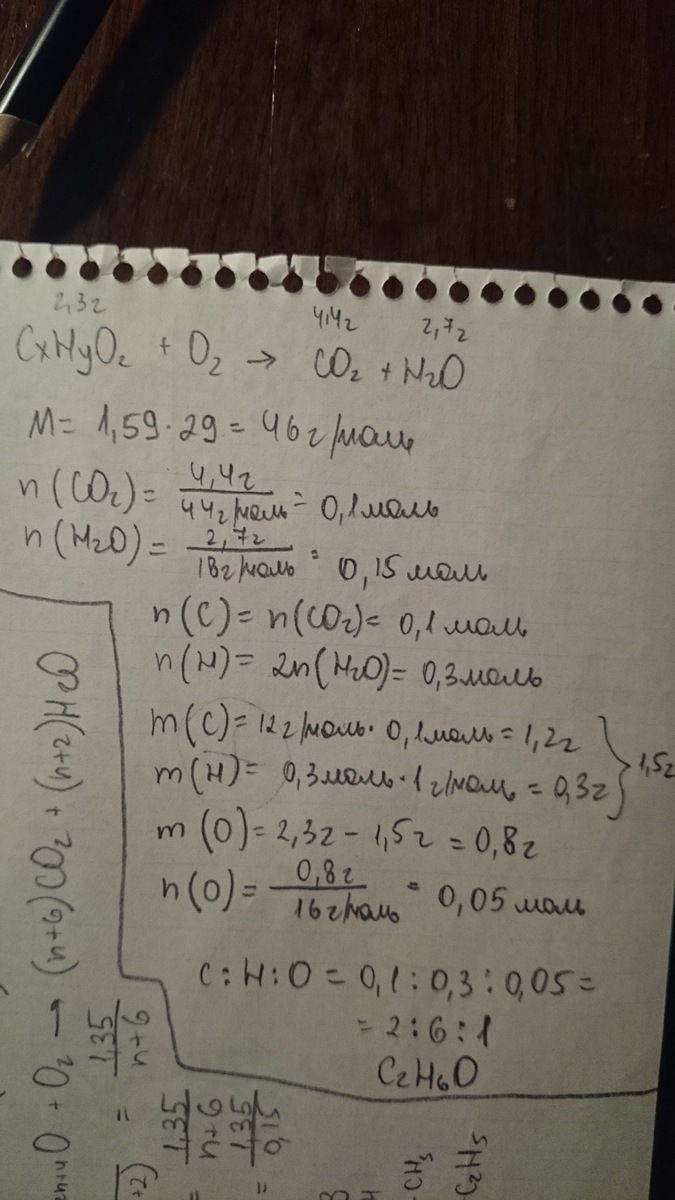 2,3г 4,4г 2,7г
CxHyO₂ + O₂ → CO₂ + H₂O
M = 1,59·29 = 46г/моль
n(CO₂) = 4,4г/44г/моль = 0,1моль
n(H₂O) = 2,7г/18г/моль = 0,15моль
n(C) = n(CO₂) = 0,1моль
n(H) = 2n(H₂O) = 0,3моль
m(C) = 12г/моль·0,1моль = 1,2г
m(H) = 0,3моль·1г/моль = 0,3г } 1,5г
m(O) = 2,3г - 1,5г = 0,8г
n(O) = 0,8г/16г/моль = 0,05моль
C:H:O = 0,1:0,3:0,05 =
= 2:6:1
C₂H₆O
O + O₂ → (n+6)CO₂ + (n+2)H₂O
= 1,35/n+6
1,35/n+6
= 1,35/0,15
-CH₃
-C₂H₅